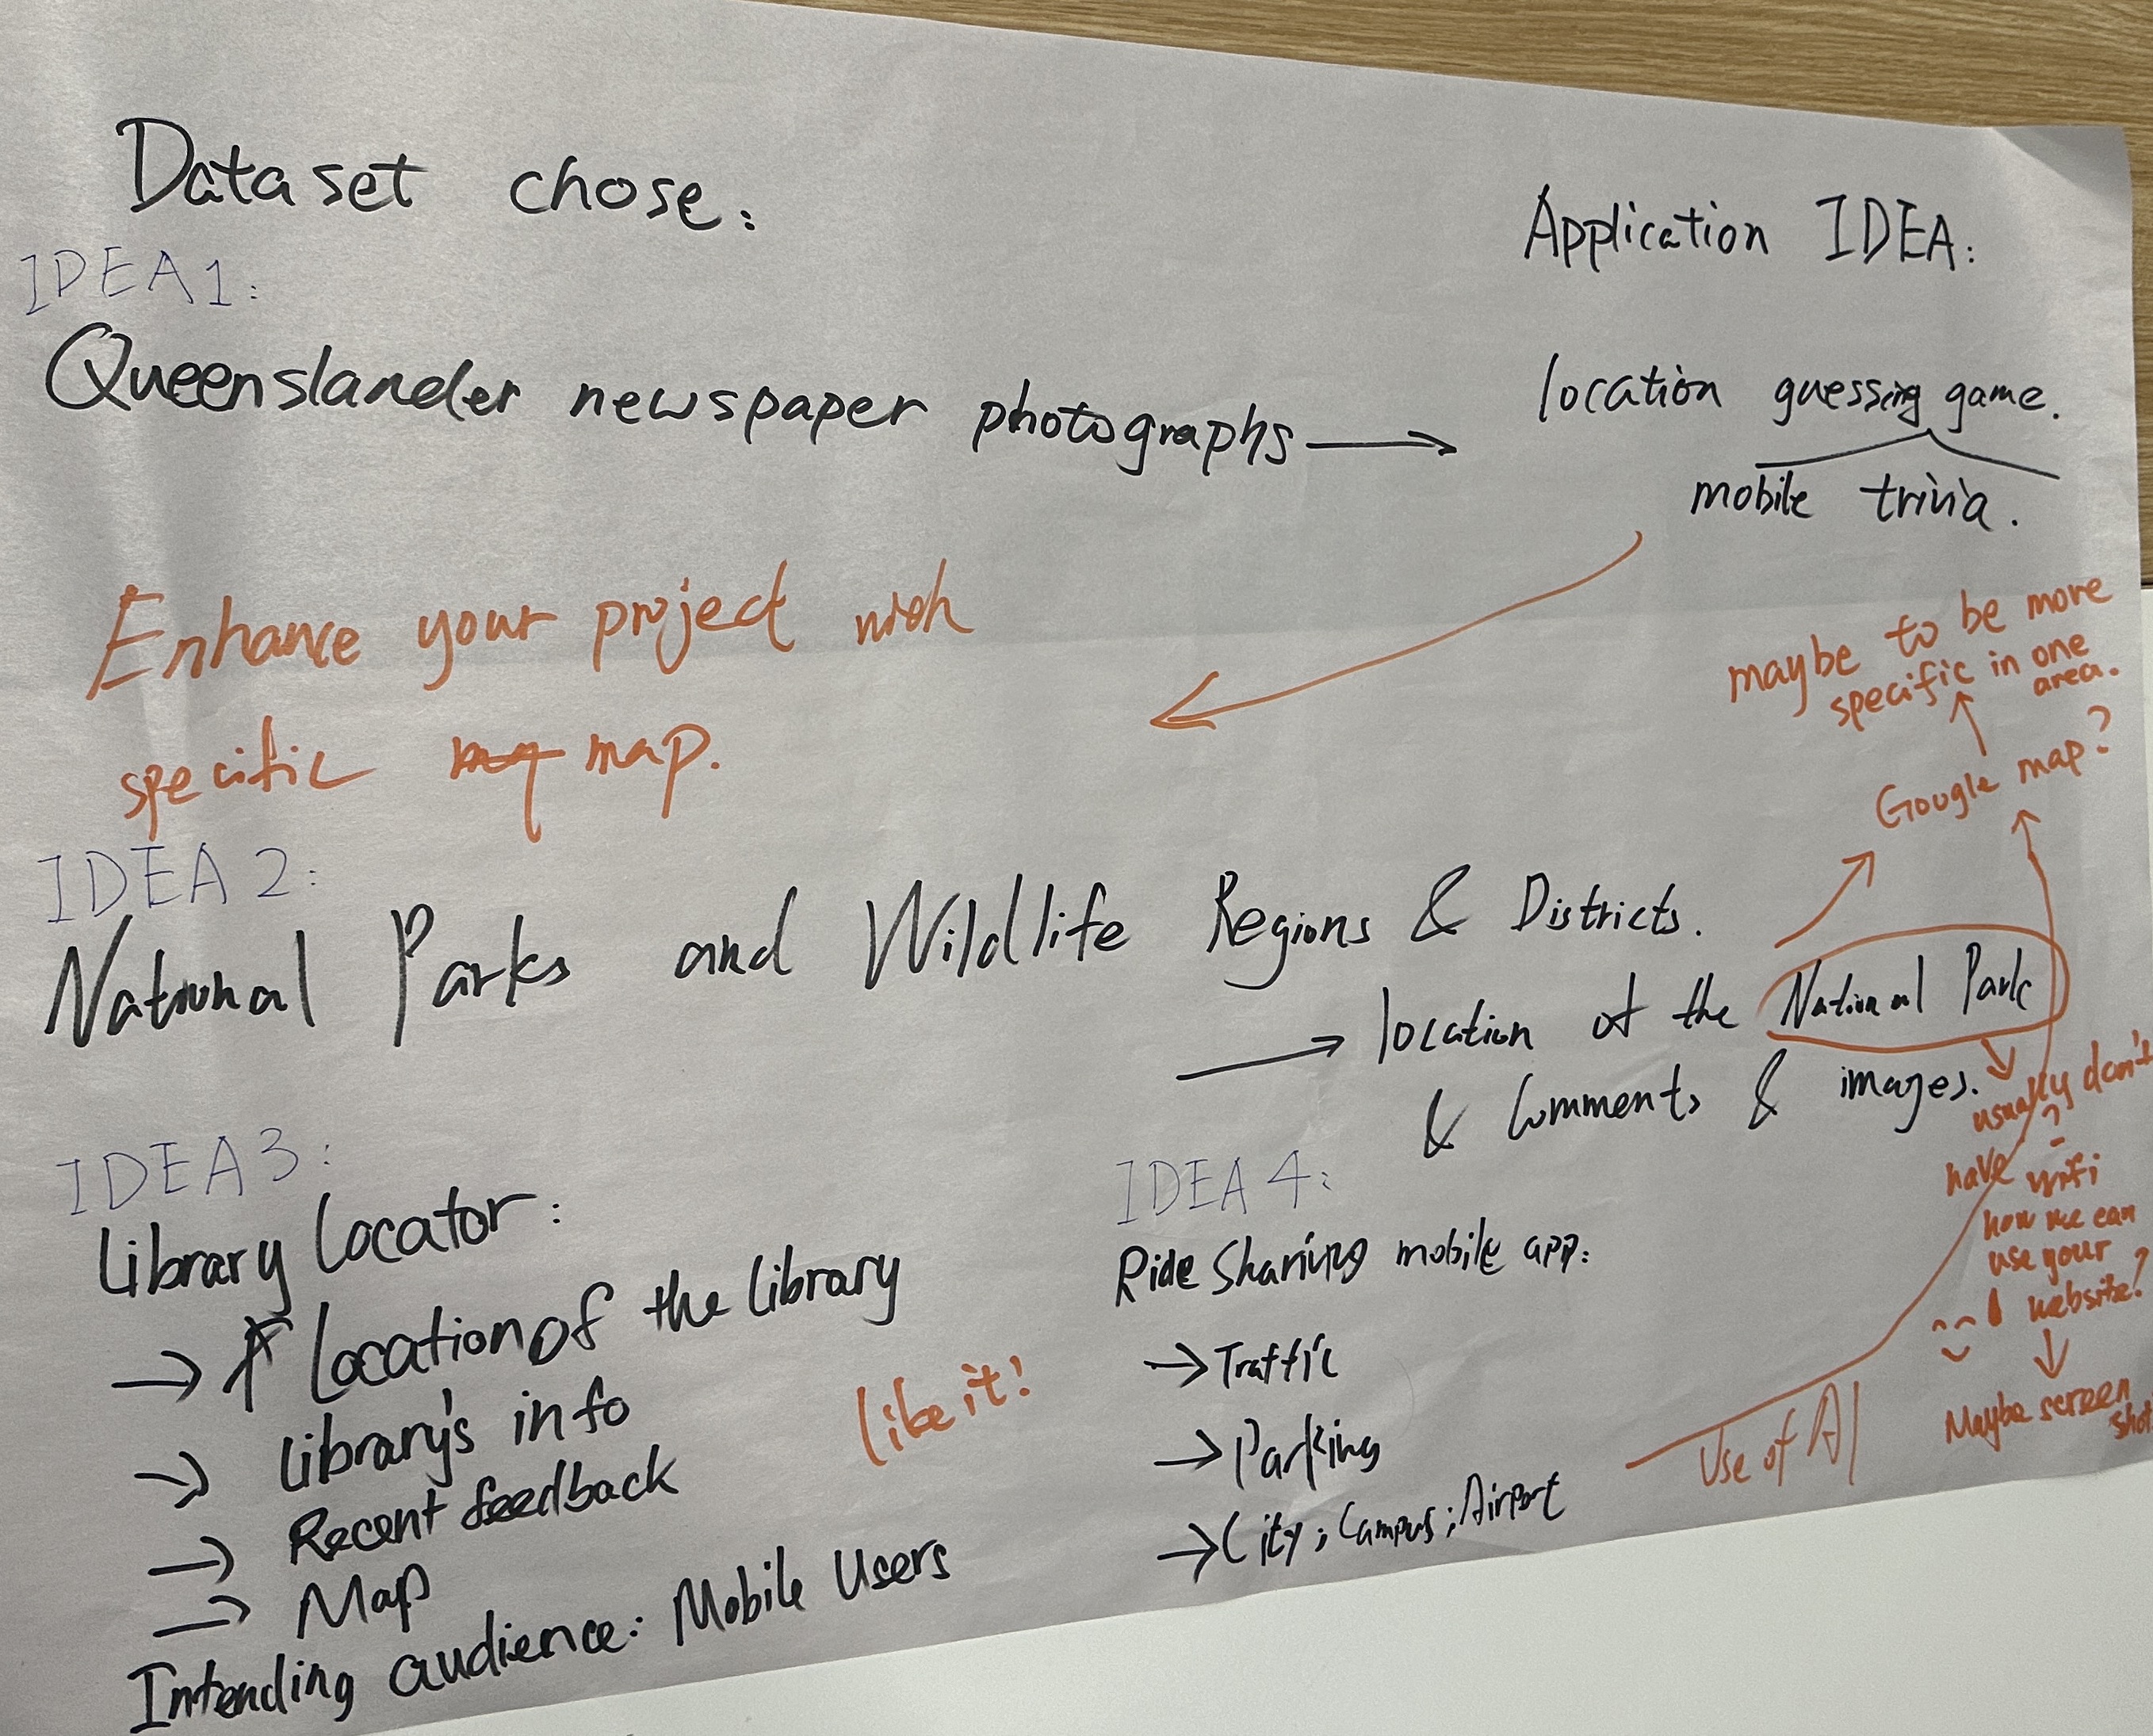 Dataset chose:
Application IDEA:
IDEA1:
Queenslander newspaper photographs →
location guessing game.
mobile trivia.
Enhance your project with
specific map.
maybe to be more
specific in one
area.
Google map?
IDEA 2:
National Parks and Wildlife Regions & Districts.
→ location of the National Park
& Comments & images.
usually don't
have wifi
?
how we can
use your
website?
Maybe screen
shot
IDEA3:
Library Locator:
→ Location of the library
→ library's info
→ Recent feedback
→ Map
Intending audience: Mobile Users
like it!
IDEA 4:
Ride Sharing mobile app:
→ Traffic
→ Parking
→ City; Campus; Airport
Use of AI